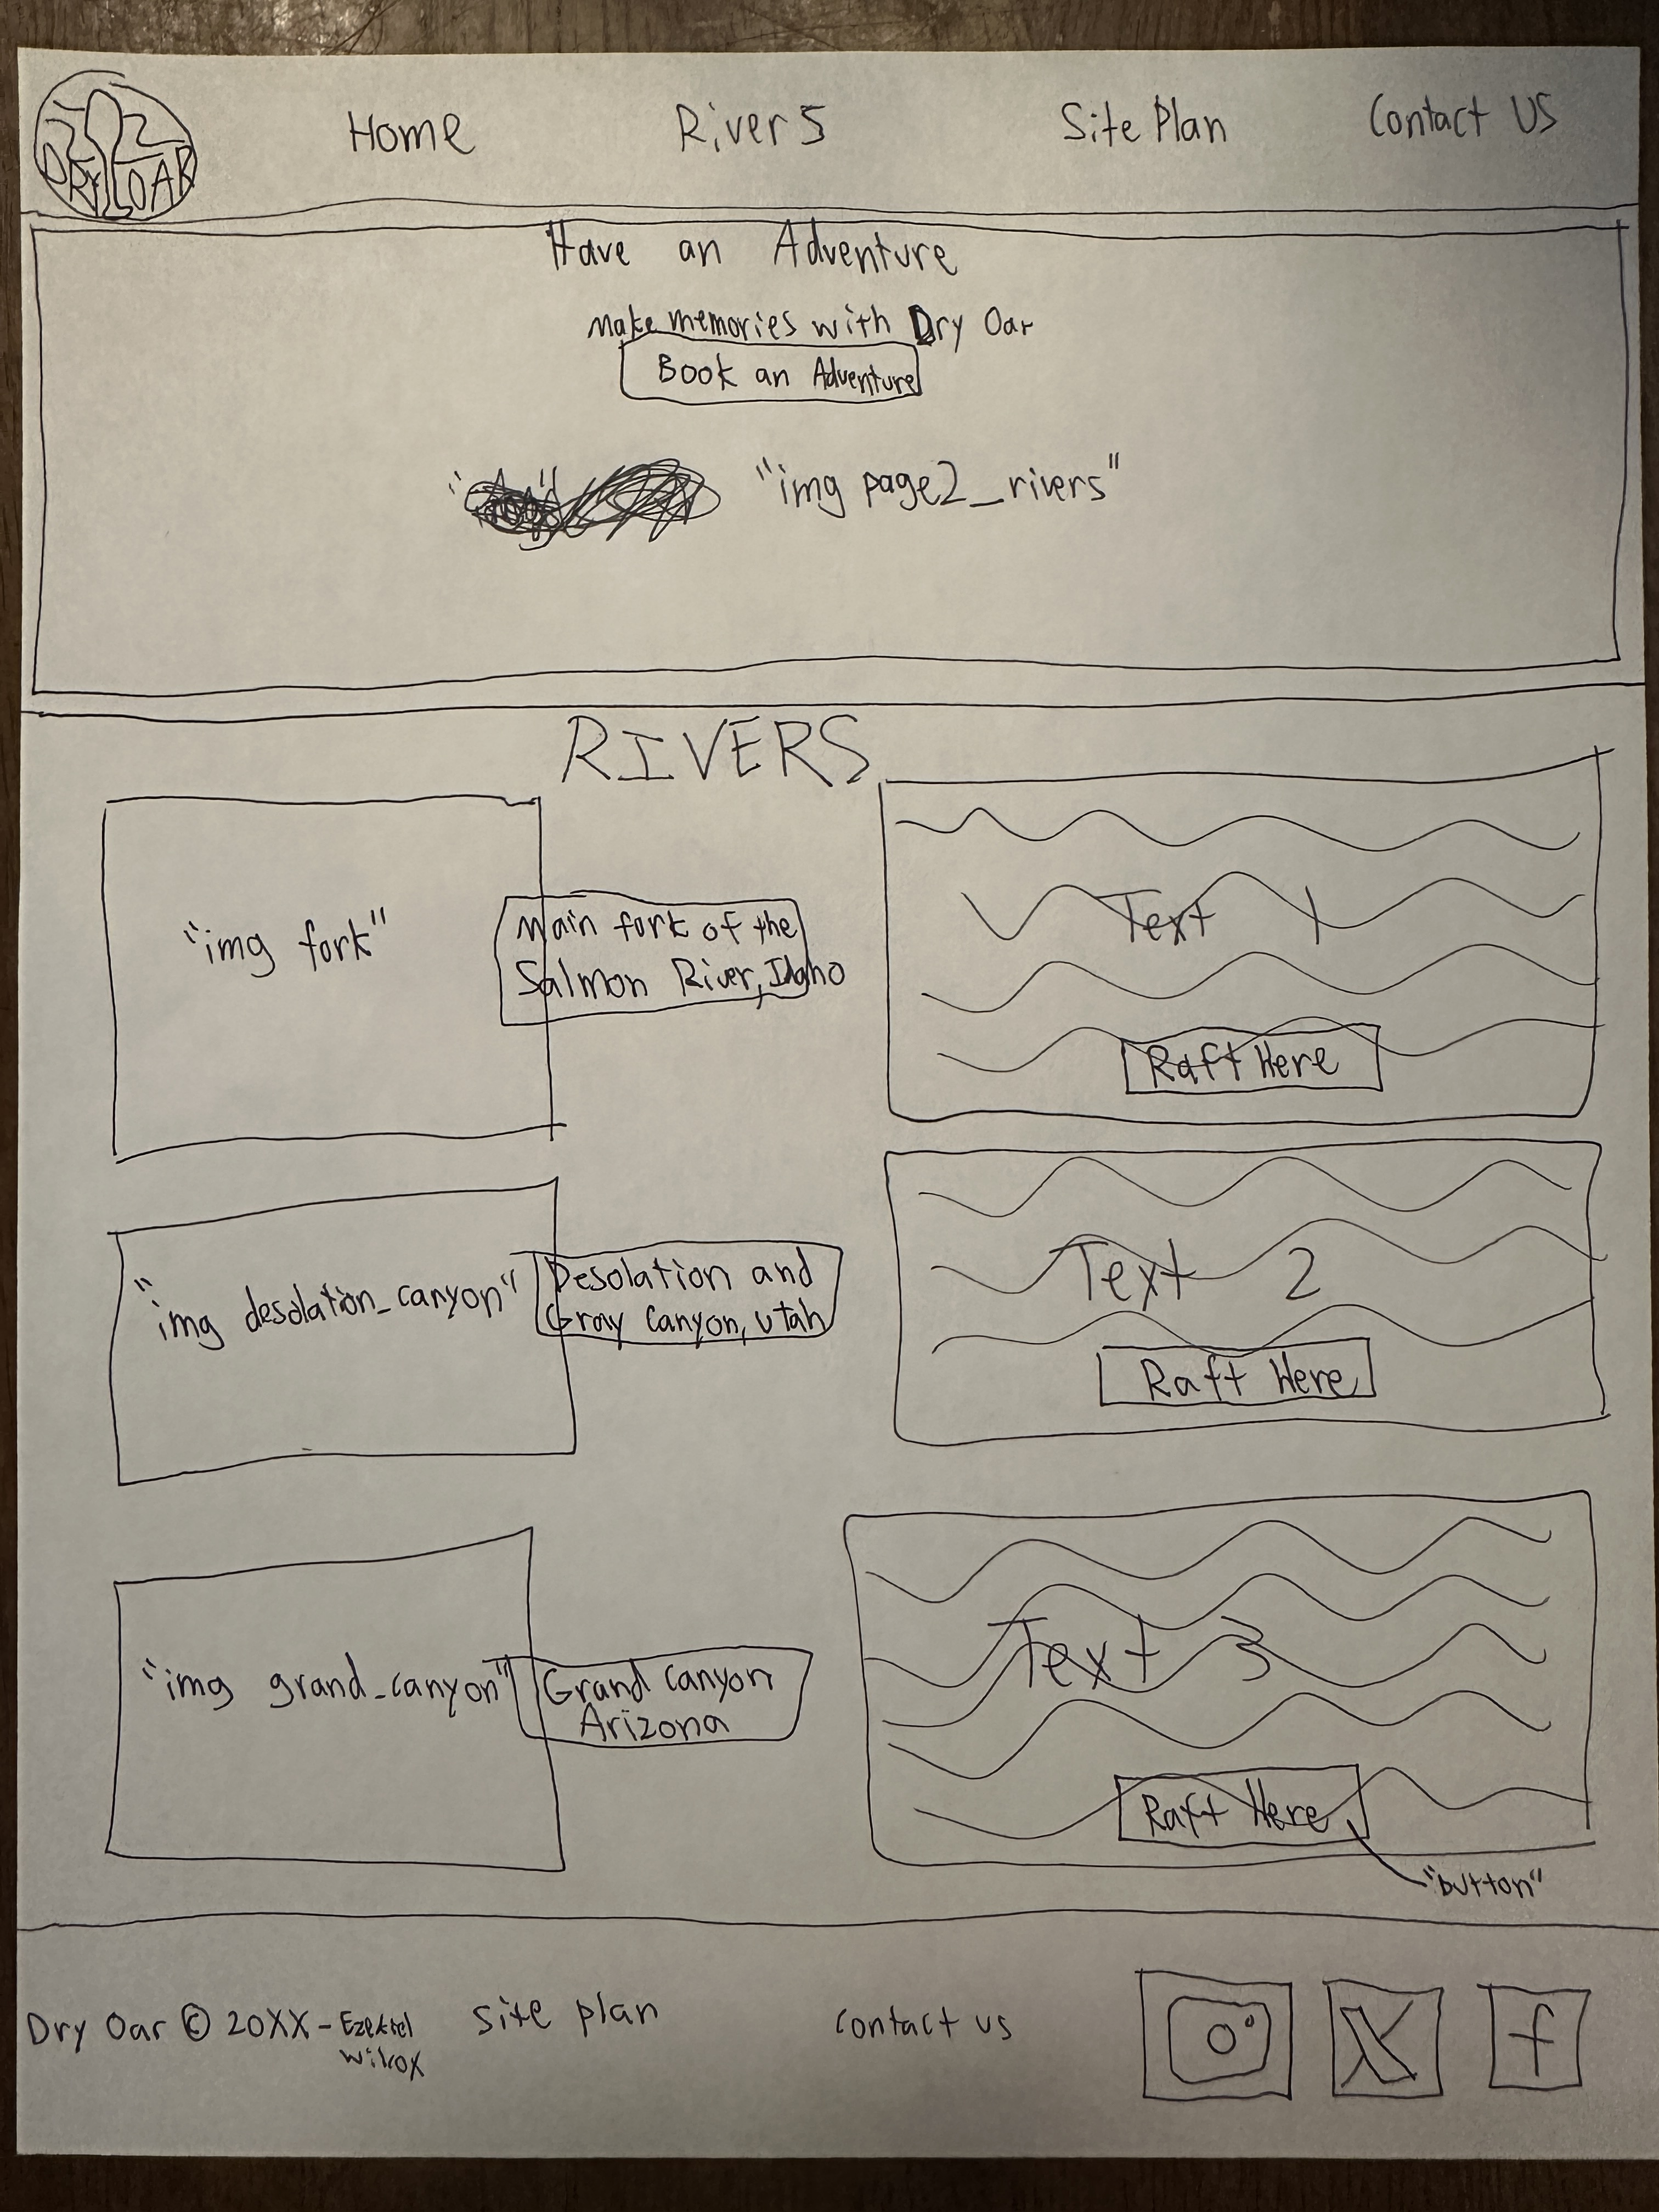 DRY OAR
Home Rivers Site Plan Contact US
Have an Adventure
Make memories with Dry Oar
Book an Adventure
"img page2_rivers"
RIVERS
"img fork"
Main fork of the
Salmon River, Idaho
Text 1
Raft Here
"img desolation_canyon"
Desolation and
Gray Canyon, Utah
Text 2
Raft Here
"img grand_canyon"
Grand Canyon
Arizona
Text 3
Raft Here
"button"
Dry Oar © 20XX - Ezekiel
Wilcox
site plan
contact us
X
f